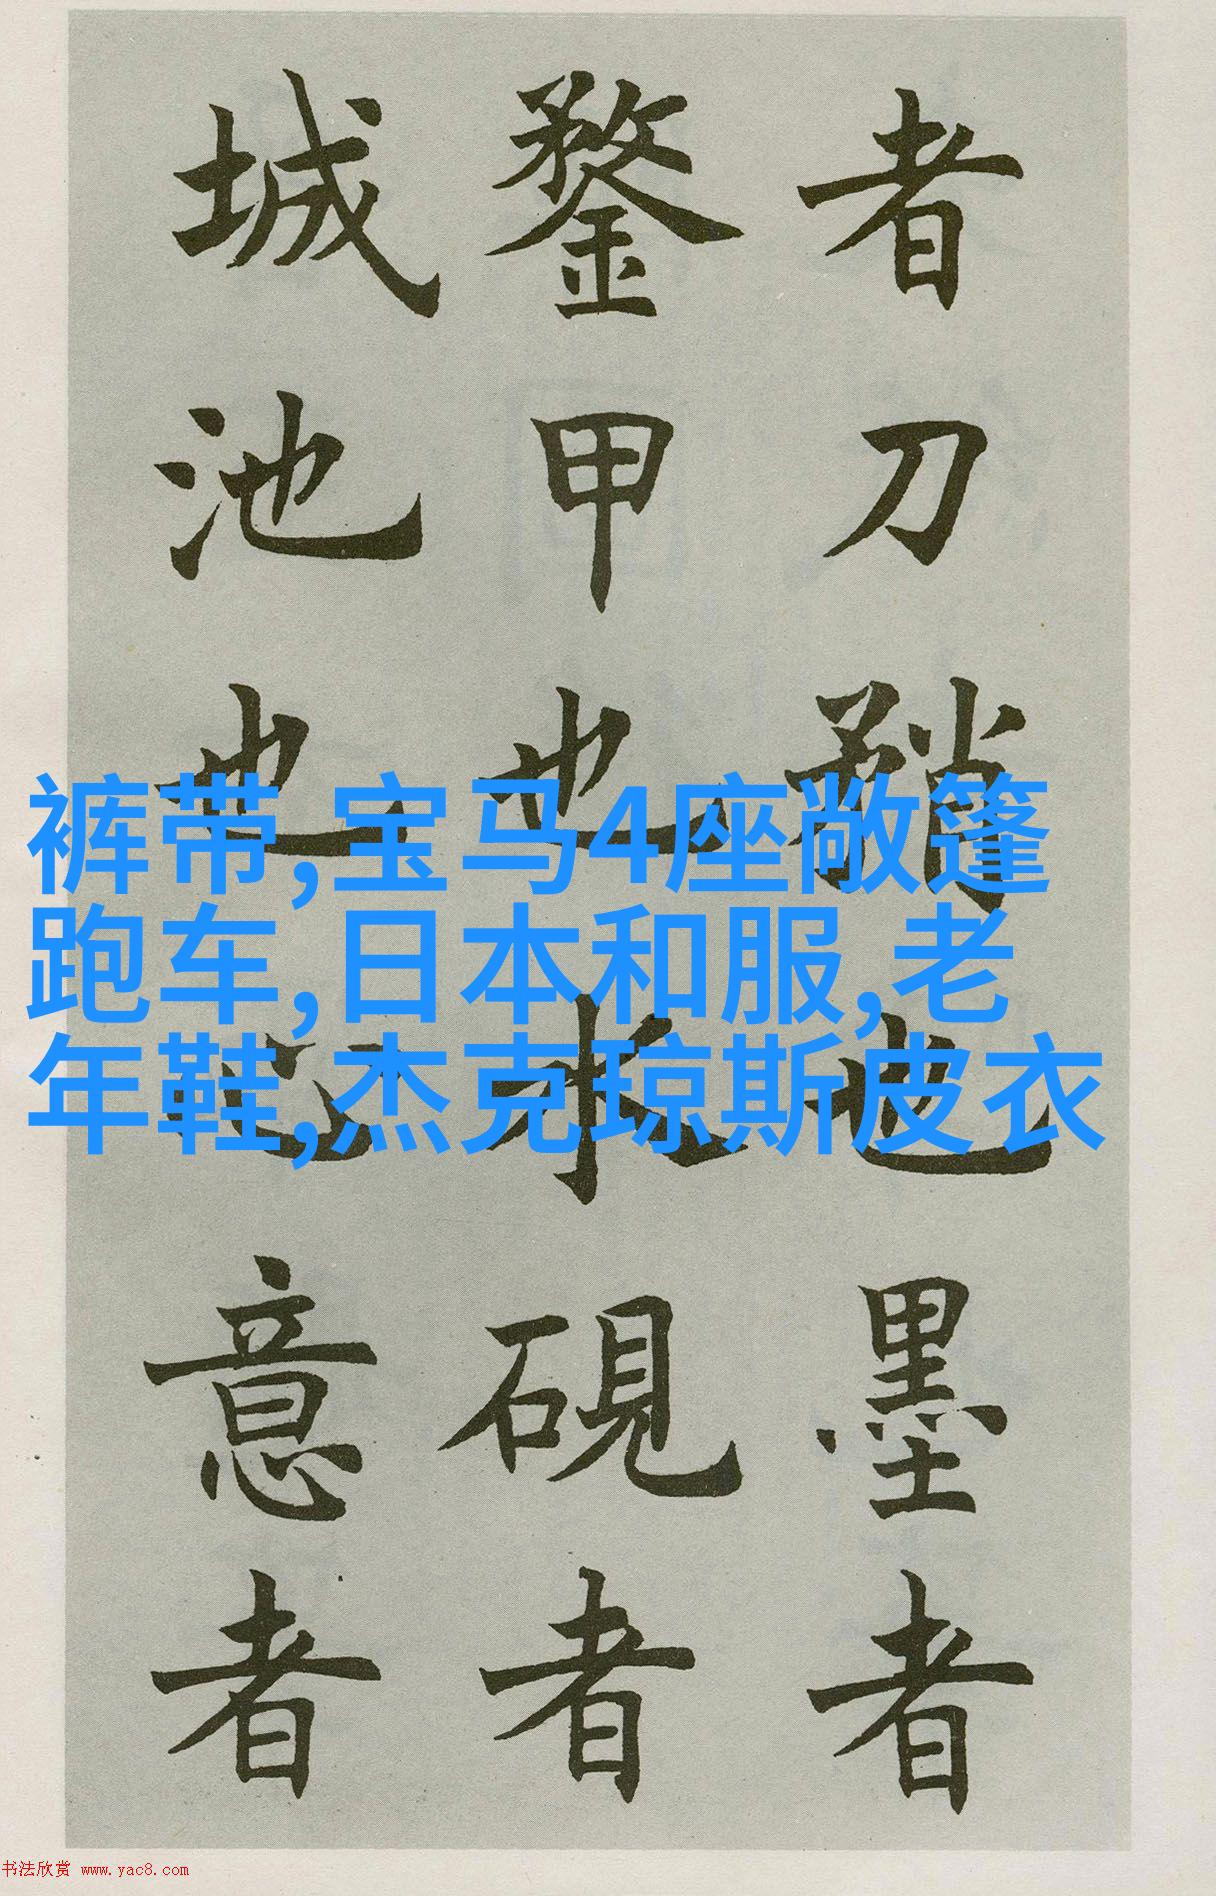 者刀矟也墨者
鍪甲也水硯者
城池也心意者
裤带,宝马4座敞篷
跑车,日本和服,老
年鞋,杰克琼斯皮衣
书法欣赏 www.yac8.com